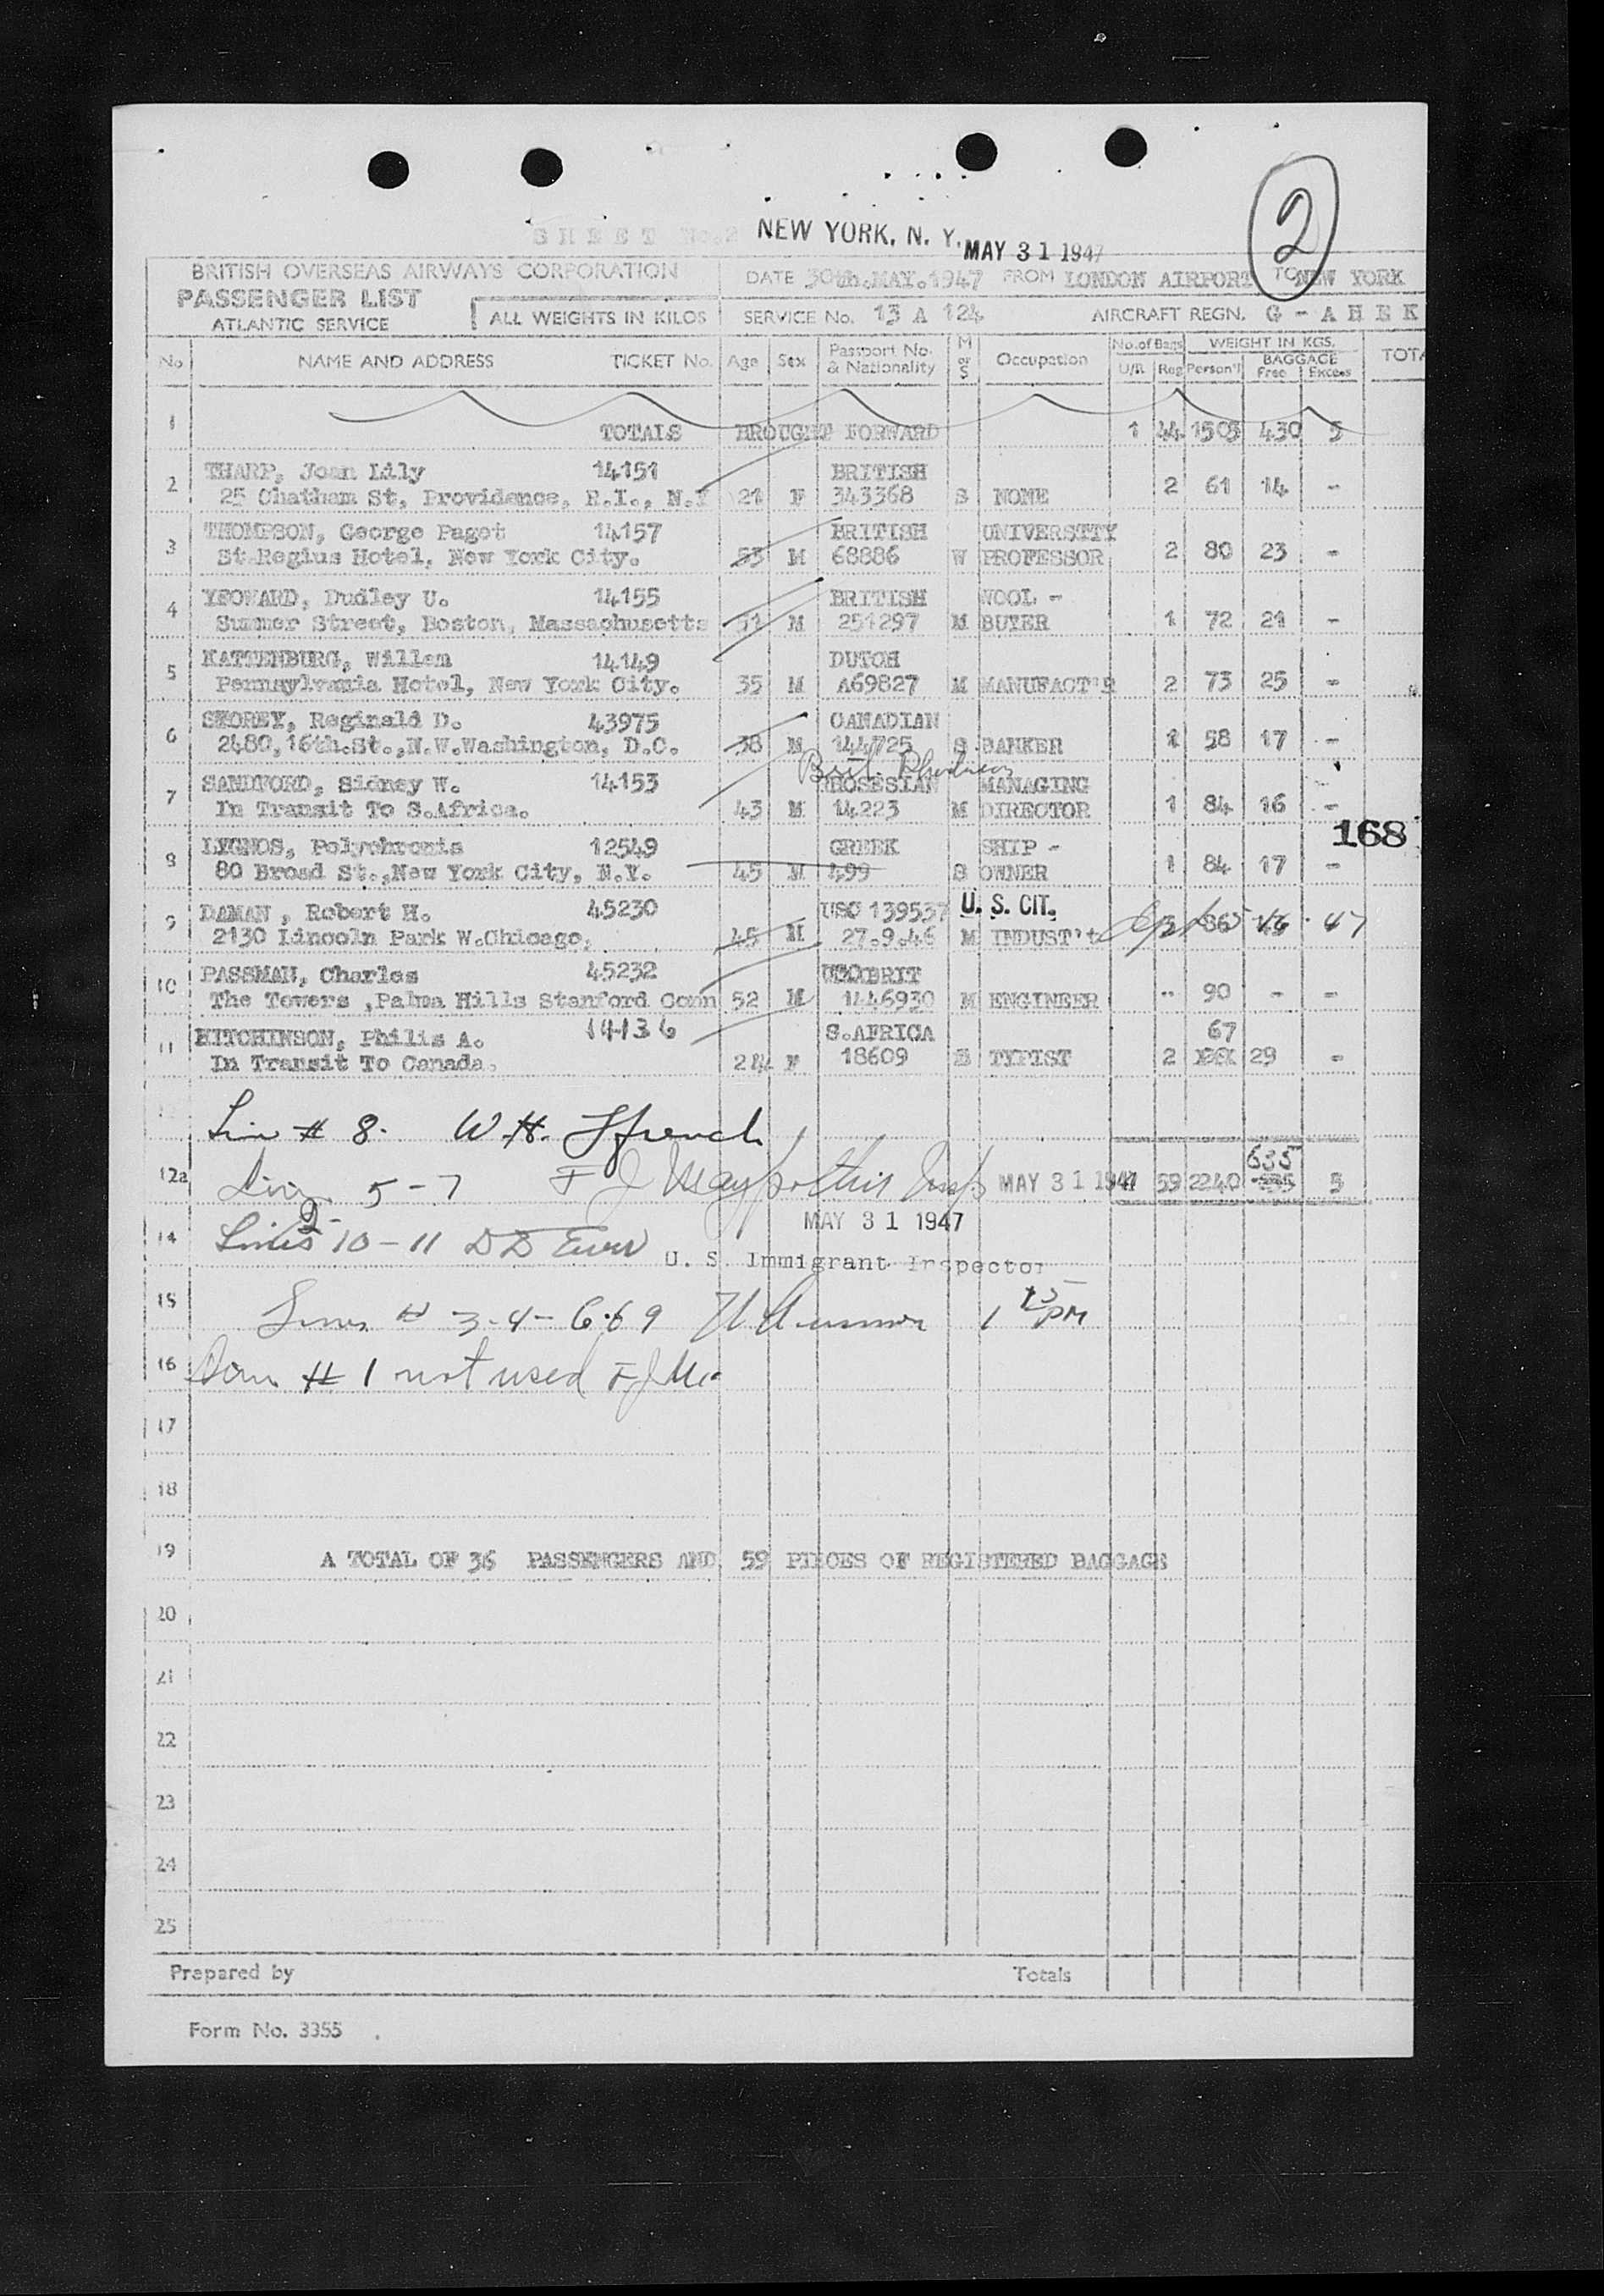 SHEET No.2 NEW YORK, N. Y. MAY 31 1947
2
BRITISH OVERSEAS AIRWAYS CORPORATION
PASSENGER LIST
ATLANTIC SERVICE
ALL WEIGHTS IN KILOS
DATE 30th.MAY.1947 FROM LONDON AIRPORT TO NEW YORK
SERVICE No. 13 A 124 AIRCRAFT REGN. G - A H E K
No NAME AND ADDRESS TICKET No. Age Sex Passport No. & Nationality M or S Occupation No.of Bags U/R Reg WEIGHT IN KGS. Person'l BAGGAGE Free Excess TOTA
1 TOTALS BROUGHT FORWARD 1 44 1503 430 5
2 THARP, Joan Lily 14151 BRITISH
25 Chatham St, Providence, R.I., N.Y 21 F 343368 S NONE 2 61 14 -
3 THOMPSON, George Paget 14157 BRITISH UNIVERSITY
St.Regius Hotel, New York City. 53 M 68886 W PROFESSOR 2 80 23 -
4 YEOWARD, Dudley U. 14155 BRITISH WOOL -
Summer Street, Boston, Massachusetts 51 M 251297 M BUYER 1 72 21 -
5 KATTENBURG, Willem 14149 DUTCH
Pennsylvania Hotel, New York City. 35 M A69827 M MANUFACT'R 2 73 25 -
6 SMOREY, Reginald D. 43975 CANADIAN
2480,16th.St.,N.W.Washington, D.C. 38 M 144725 S BANKER 1 58 17 -
Brit. Rhodesian
7 SANDFORD, Sidney W. 14153 RHOSESIAN MANAGING
In Transit To S.Africa. 43 M 14223 M DIRECTOR 1 84 16 -
168
8 LYGNOS, Polychronis 12549 GREEK SHIP -
80 Broad St.,New York City, N.Y. 45 M 499 S OWNER 1 84 17 -
9 DAMAN , Robert H. 45230 USC 139537 U. S. CIT.
2130 Lincoln Park W.Chicago, 45 M 27.9.46 M INDUST't 86
10 PASSMAN, Charles 45232 BRIT
The Towers ,Palma Hills Stanford Conn 52 M 1446930 M ENGINEER - 90 - -
11 HITCHINSON, Philis A. 14136 S.AFRICA 67
In Transit To Canada. 24 F 18609 S TYPIST 2 29 -
Line # 8. W.H. Ffrench
635
12a Line 5-7 F J Insp MAY 31 1947 59 2240 5
MAY 31 1947
14 Lines 2 10-11 D D
U. S. Immigrant Inspector
15 Lines # 3-4-6-&9 1 15 PM
16 Line # 1 not used F.J.M.
17
18
19 A TOTAL OF 36 PASSENGERS AND 59 PIECES OF REGISTERED BAGGAGE
20
21
22
23
24
25
Prepared by Totals
Form No. 3355